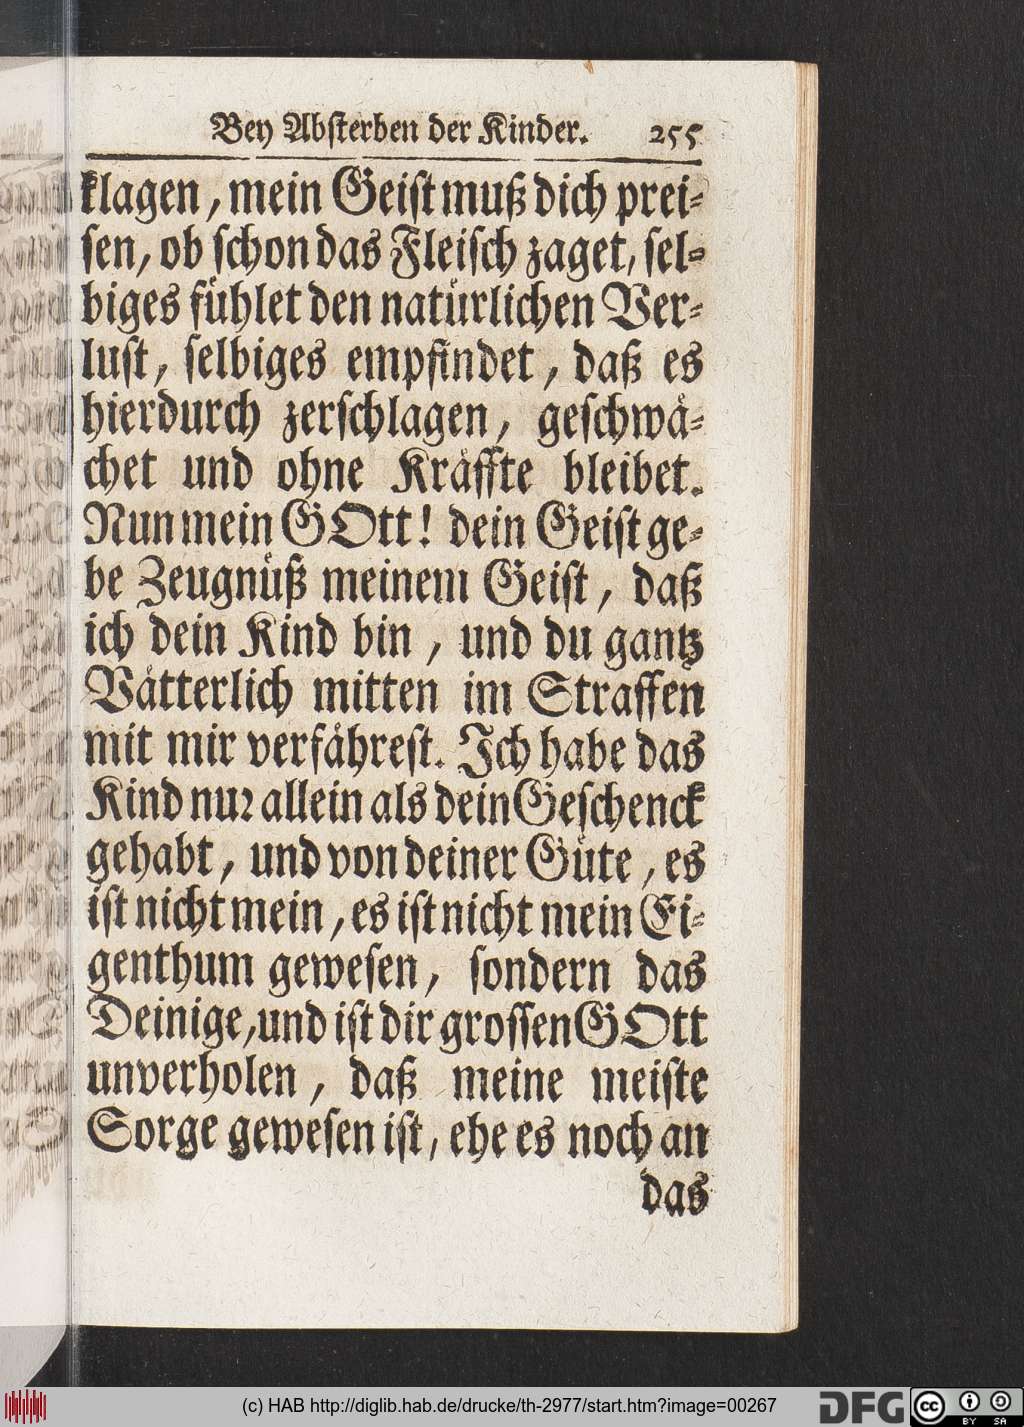 Bey Absterben der Kinder. 255
klagen, mein Geist muß dich prei-
sen, ob schon das Fleisch zaget, sel-
biges fühlet den natürlichen Ver-
lust, selbiges empfindet, daß es
hierdurch zerschlagen, geschwä-
chet und ohne Kräffte bleibet.
Nun mein GOtt! dein Geist ge-
be Zeugnüß meinem Geist, daß
ich dein Kind bin, und du gantz
Vätterlich mitten im Straffen
mit mir verfährest. Ich habe das
Kind nur allein als dein Geschenck
gehabt, und von deiner Güte, es
ist nicht mein, es ist nicht mein Ei-
genthum gewesen, sondern das
Deinige, und ist dir grossen GOtt
unverholen, daß meine meiste
Sorge gewesen ist, ehe es noch an
das
(c) HAB http://diglib.hab.de/drucke/th-2977/start.htm?image=00267
DFG
cc BY SA